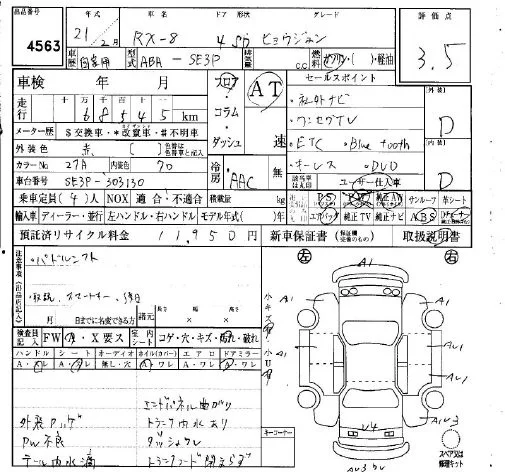 出品番号
4563
年式
21年2月
車名
RX-8
ドア 形状
4 SD
グレード
評価点
3.5
車歴
自家用
型式
ABA-SE3P
排気量
C.C.
燃料
ガソリン・( )・軽油
車検 年 月
フロア・コラム・ダッシュ
AT
速
セールスポイント
走行
十万 万 千 百 十
68545 km
・社外ナビ
・ワンセグTV
・ETC ・Bluetooth
・キーレス ・DVD
外装
D
内装
D
メーター歴
$交換車・*改竄車・#不明車
外装色
赤
カラーNo
27A
内装色
クロ
車台番号
SE3P-303130
冷房
AAC
無
ユーザー仕入車
乗車定員 ( 4 ) 人
NOX 適合・不適合
積載量
kg
PS
PW
純正AW
サンルーフ
革シート
輸入車
ディーラー・並行
左ハンドル・右ハンドル
モデル年式( )年
エアバック
純正TV
純正ナビ
ABS
預託済リサイクル料金
11950円
新車保証書
取扱説明書
注意事項(出品店記入)
・パドルシフト
月 日までに名変できる方
諸元
長さ
幅
高さ
左
右
小キズ
小U
検査員記入
FW
A・X要ス
室内シート
コゲ・穴・キズ・汚れ・破れ
ハンドル
シート
オーディオ
ホイル(カバー)
エアロ
ドアミラー
A・ワレ
A・ワレ
無し・穴
A・ワレ
A・ワレ
A・ワレ
エンドパネル曲がり
トランク内水あり
ダッシュワレ
PW不良
テール内水滴
キーコーナー
A1
A1
A1
A1
AU1
AU1
AU3
U4
スペア又は修理キット